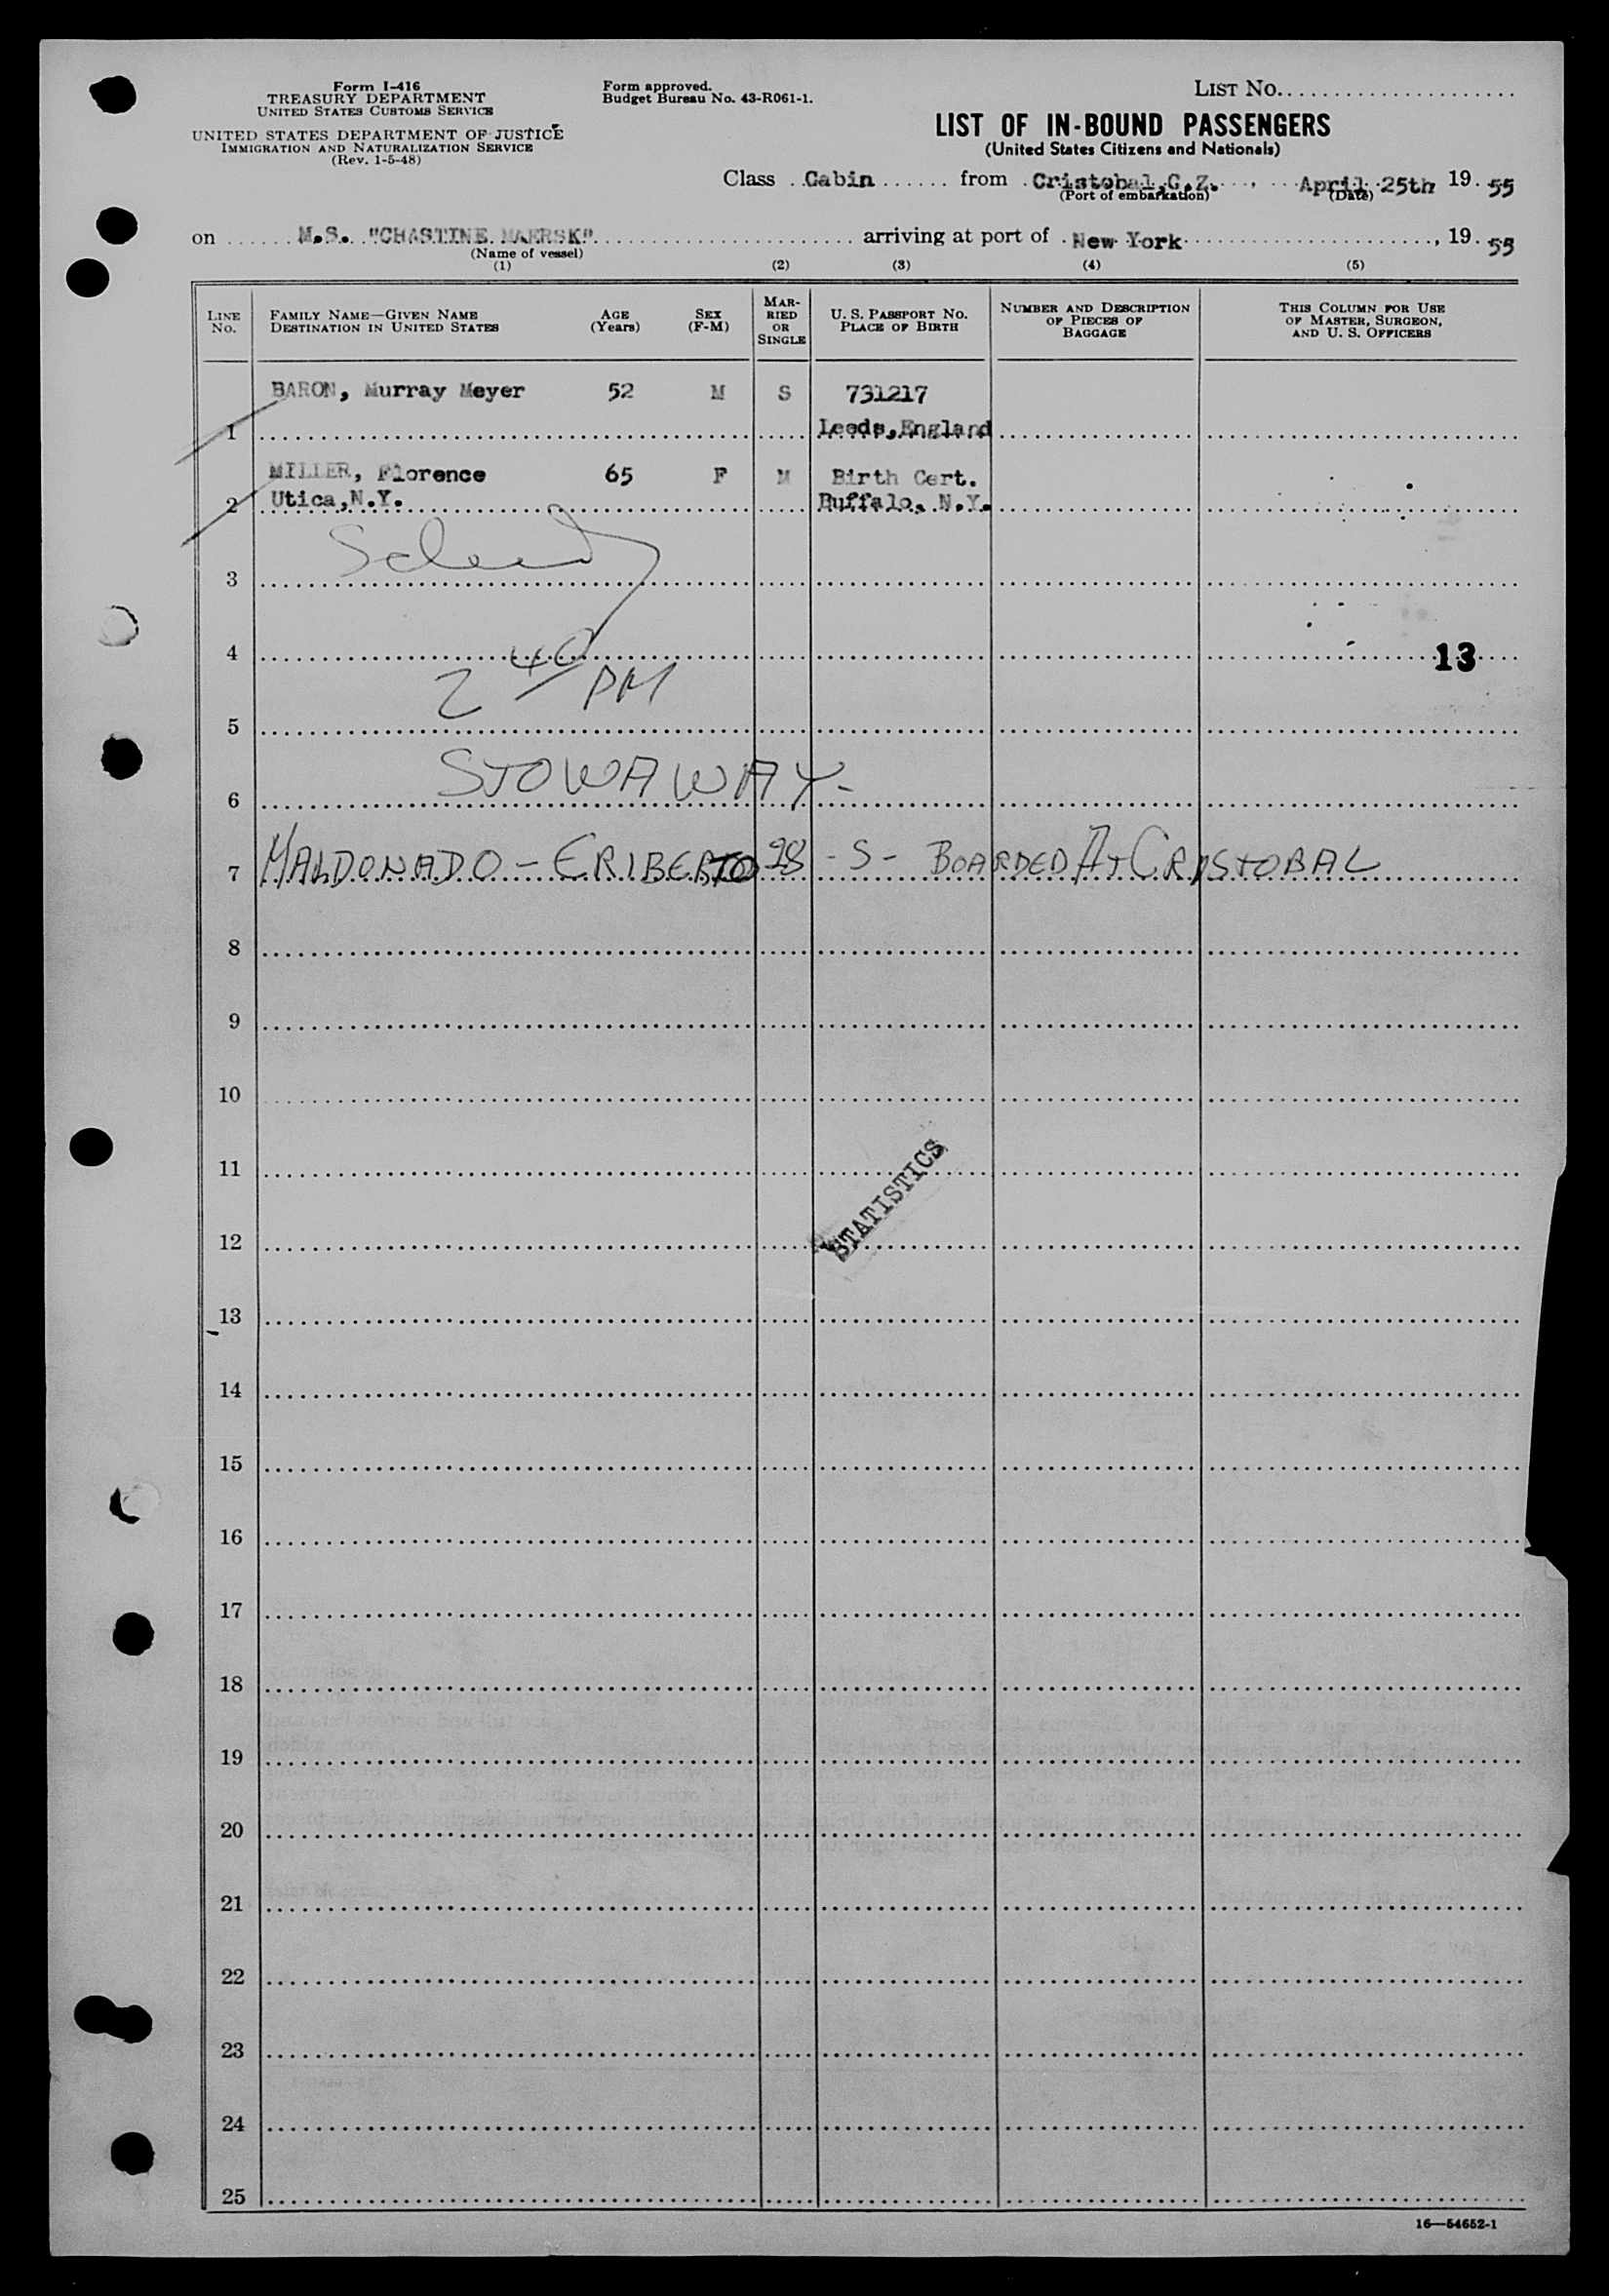 Form I-416
TREASURY DEPARTMENT
UNITED STATES CUSTOMS SERVICE
UNITED STATES DEPARTMENT OF JUSTICE
IMMIGRATION AND NATURALIZATION SERVICE
(Rev. 1-5-48)
Form approved.
Budget Bureau No. 43-R061-1.
LIST NO.
LIST OF IN-BOUND PASSENGERS
(United States Citizens and Nationals)
Class Cabin from Cristobal,C.Z., April 25th 19 55
(Port of embarkation) (Date)
on M.S. "CHASTINE MAERSK" arriving at port of New York, 19 55
(Name of vessel)
(1) (2) (3) (4) (5)
LINE NO.
FAMILY NAME—GIVEN NAME
DESTINATION IN UNITED STATES
AGE (Years)
SEX (F-M)
MARRIED OR SINGLE
U. S. PASSPORT NO.
PLACE OF BIRTH
NUMBER AND DESCRIPTION OF PIECES OF BAGGAGE
THIS COLUMN FOR USE OF MASTER, SURGEON, AND U. S. OFFICERS
BARON, Murray Meyer 52 M S 731217
1 Leeds,England
MILLER, Florence 65 F M Birth Cert.
2 Utica,N.Y. Buffalo, N.Y.
3
4 13
2 40 PM
5
STOWAWAY-
6
7 MALDONADO - ERIBERTO 28 - S - BOARDED AT CRISTOBAL
8
9
10
11
STATISTICS
12
13
14
15
16
17
18
19
20
21
22
23
24
25
16—54652-1